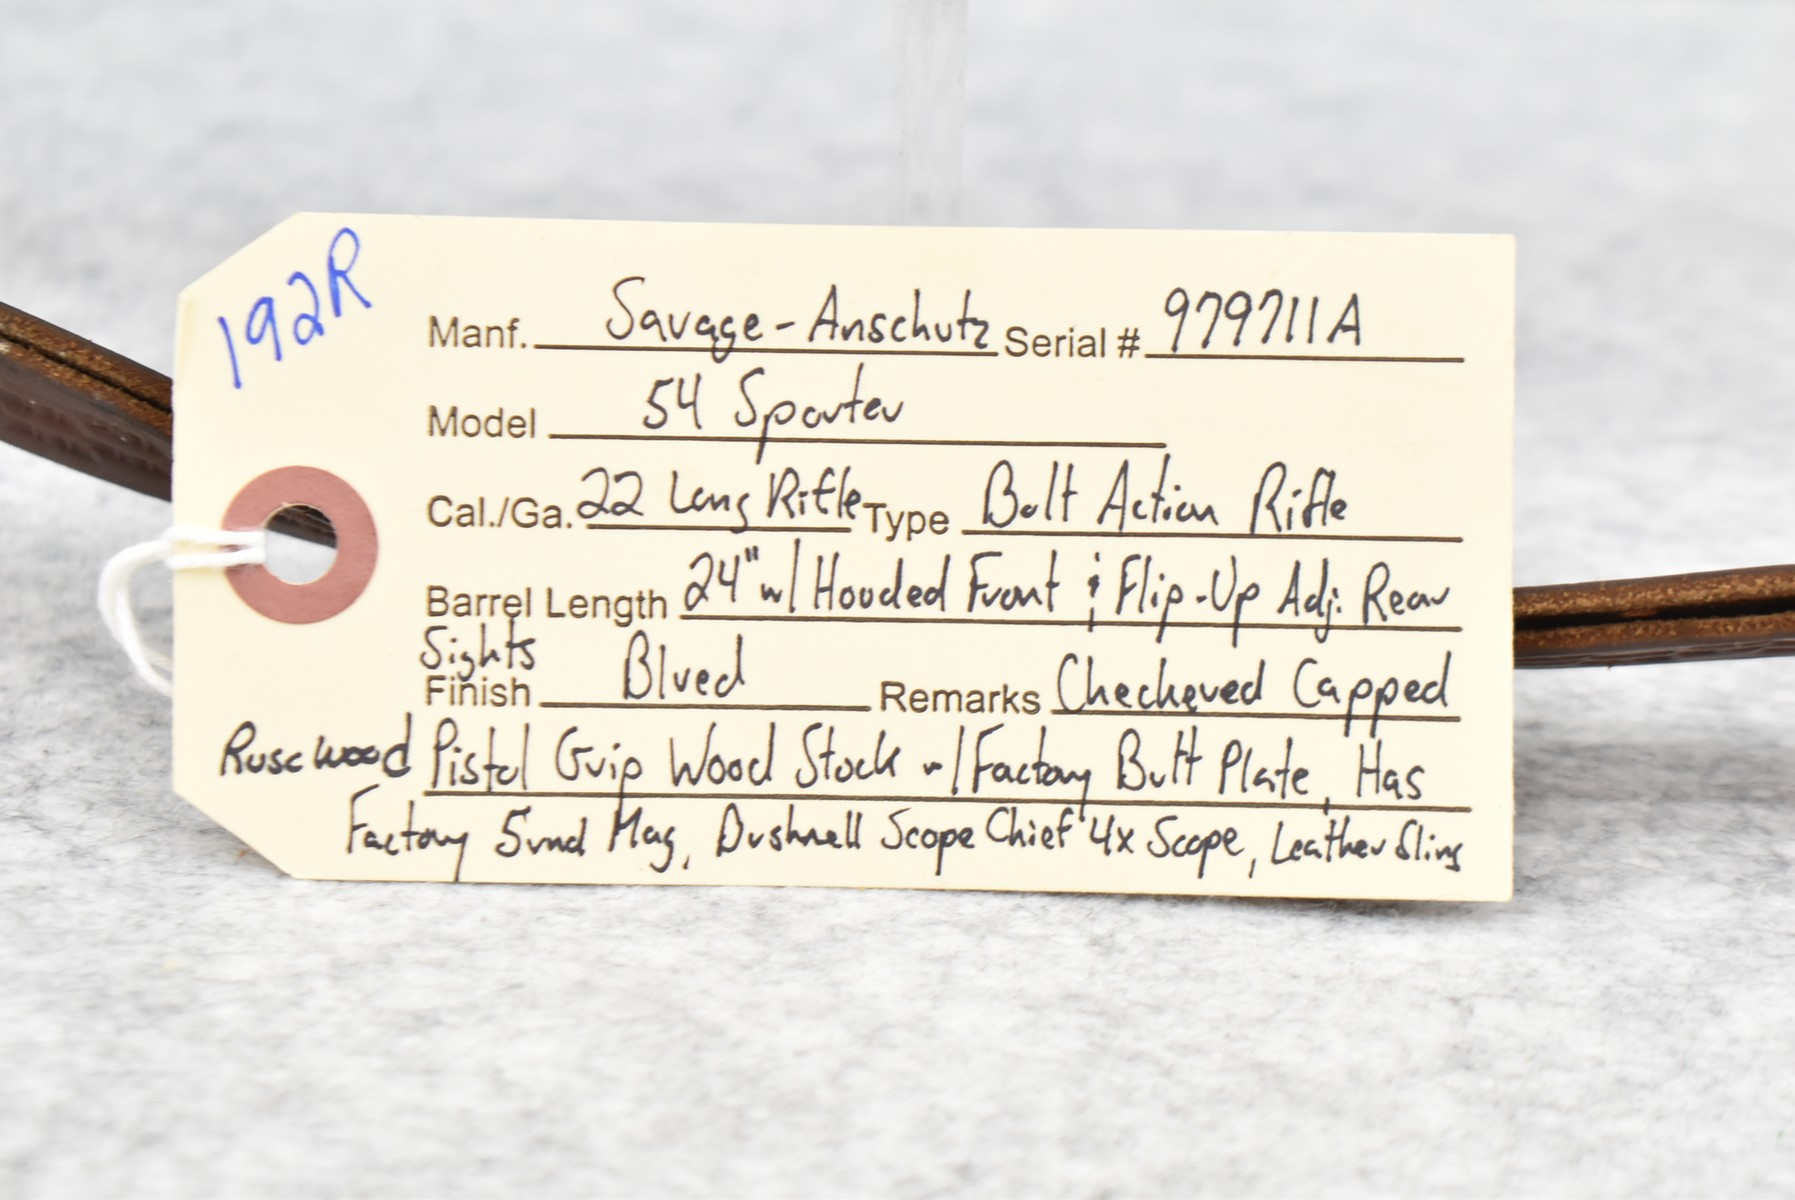 192R
Manf. Savage-Anschutz Serial # 979711A
Model 54 Sporter
Cal./Ga. 22 Long Rifle Type Bolt Action Rifle
Barrel Length 24" w/ Hooded Front & Flip-Up Adj. Rear
Sights
Finish Blued Remarks Checkered Capped
Rosewood Pistol Grip Wood Stock w/ Factory Butt Plate, Has
Factory 5rnd Mag, Bushnell Scope Chief 4x Scope, Leather Sling